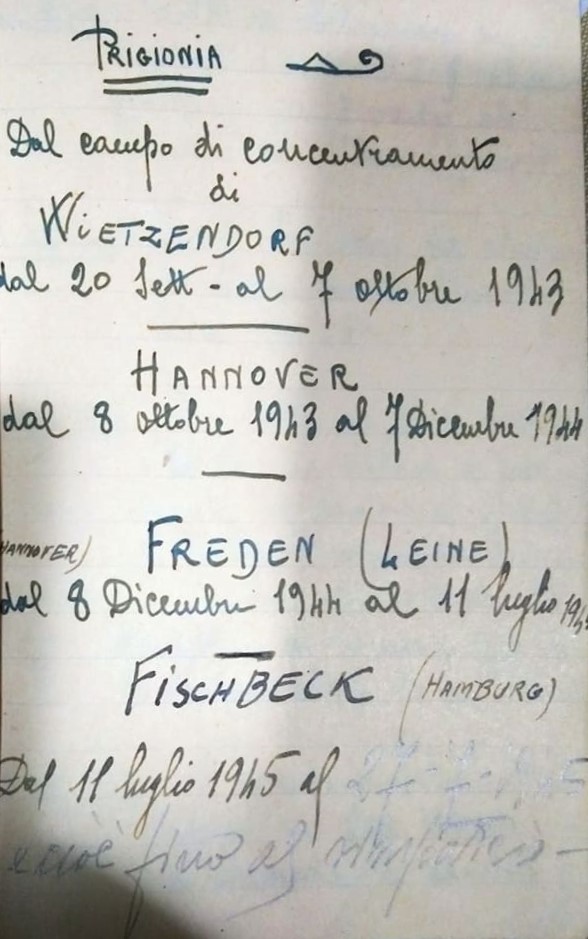 PRIGIONIA
Dal campo di concentramento
di
WIETZENDORF
dal 20 Sett - al 7 ottobre 1943
HANNOVER
dal 8 ottobre 1943 al 7 Dicembre 1944
HANNOVER) FREDEN (LEINE)
dal 8 Dicembre 1944 al 11 luglio 194
FISCHBECK (HAMBURG)
Dal 11 luglio 1945 al
cioè fino al rimpatrio -